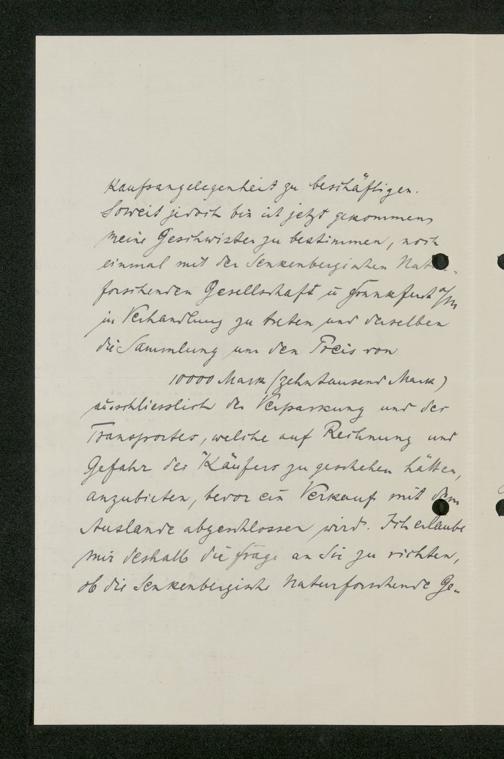 Kaufsangelegenheit zu beschäftigen.
Soweit jedoch bin ich jetzt gekommen,
meine Geschwister zu bestimmen, noch
einmal mit der Senkenbergischen Natur-
forschenden Gesellschaft in Frankfurt a/M
in Verhandlung zu treten und derselben
die Sammlung um den Preis von
10000 Mark (zehntausend Mark)
ausschliesslich der Verpackung und des
Transportes, welche auf Rechnung und
Gefahr des Käufers zu geschehen hätten,
anzubieten, bevor ein Verkauf mit dem
Auslande abgeschlossen wird. Ich erlaube
mir deshalb die Frage an Sie zu richten,
ob die Senkenbergische Naturforschende Ge-